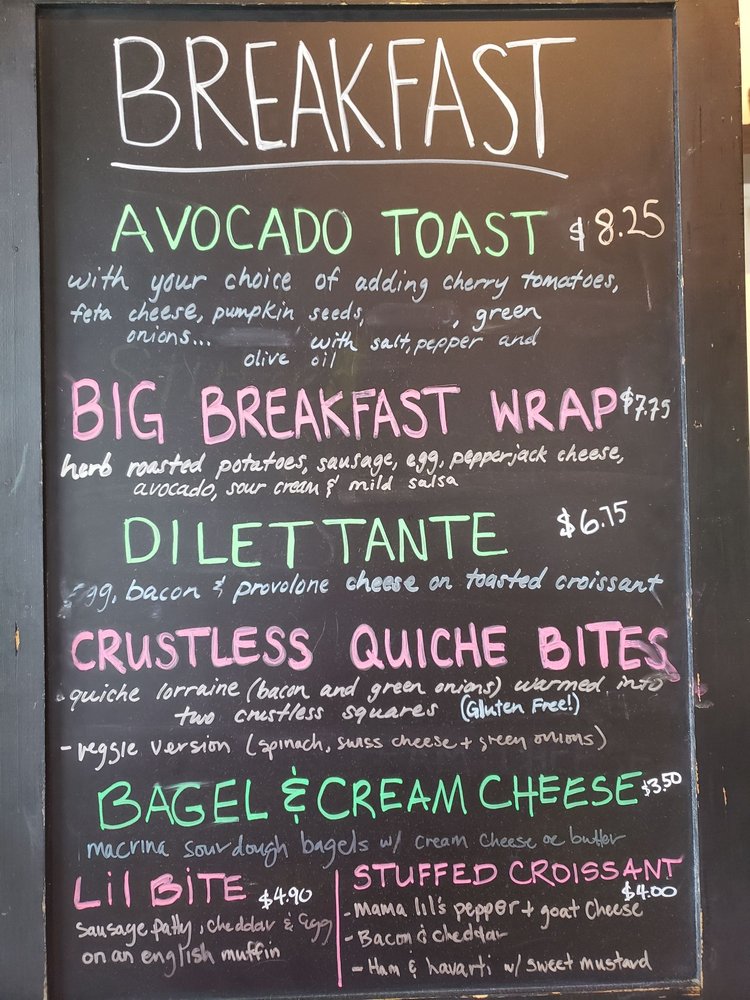 BREAKFAST
AVOCADO TOAST $8.25
with your choice of adding cherry tomatoes,
feta cheese, pumpkin seeds, , green
onions... with salt, pepper and
olive oil
BIG BREAKFAST WRAP $7.75
herb roasted potatoes, sausage, egg, pepperjack cheese,
avocado, sour cream & mild salsa
DILETTANTE $6.75
Egg, bacon & provolone cheese on toasted croissant
CRUSTLESS QUICHE BITES
- quiche lorraine (bacon and green onions) warmed into
two crustless squares (Gluten Free!)
- veggie version (spinach, swiss cheese + green onions)
BAGEL & CREAM CHEESE $3.50
macrina sourdough bagels w/ cream cheese or butter
Lil BiTE $4.90
sausage patty, cheddar & Egg
on an english muffin
STUFFED CROISSANT
$4.00
- Mama lil's pepper + goat cheese
- Bacon & cheddar
- Ham & havarti w/ sweet mustard